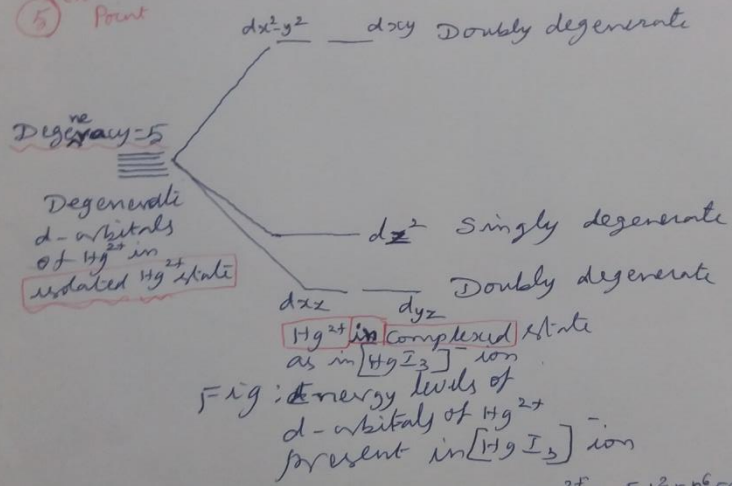 5 Point
dx²-y² dxy Doubly degenerate
Degeneracy=5
Degenerate
d-orbitals
of Hg²⁺ in
isolated Hg²⁺ state
dz² Singly degenerate
Doubly degenerate
dxz dyz
Hg²⁺ in complexed state
as in [HgI₃]⁻ ion
Fig: Energy levels of
d-orbitals of Hg²⁺
present in [HgI₃]⁻ ion